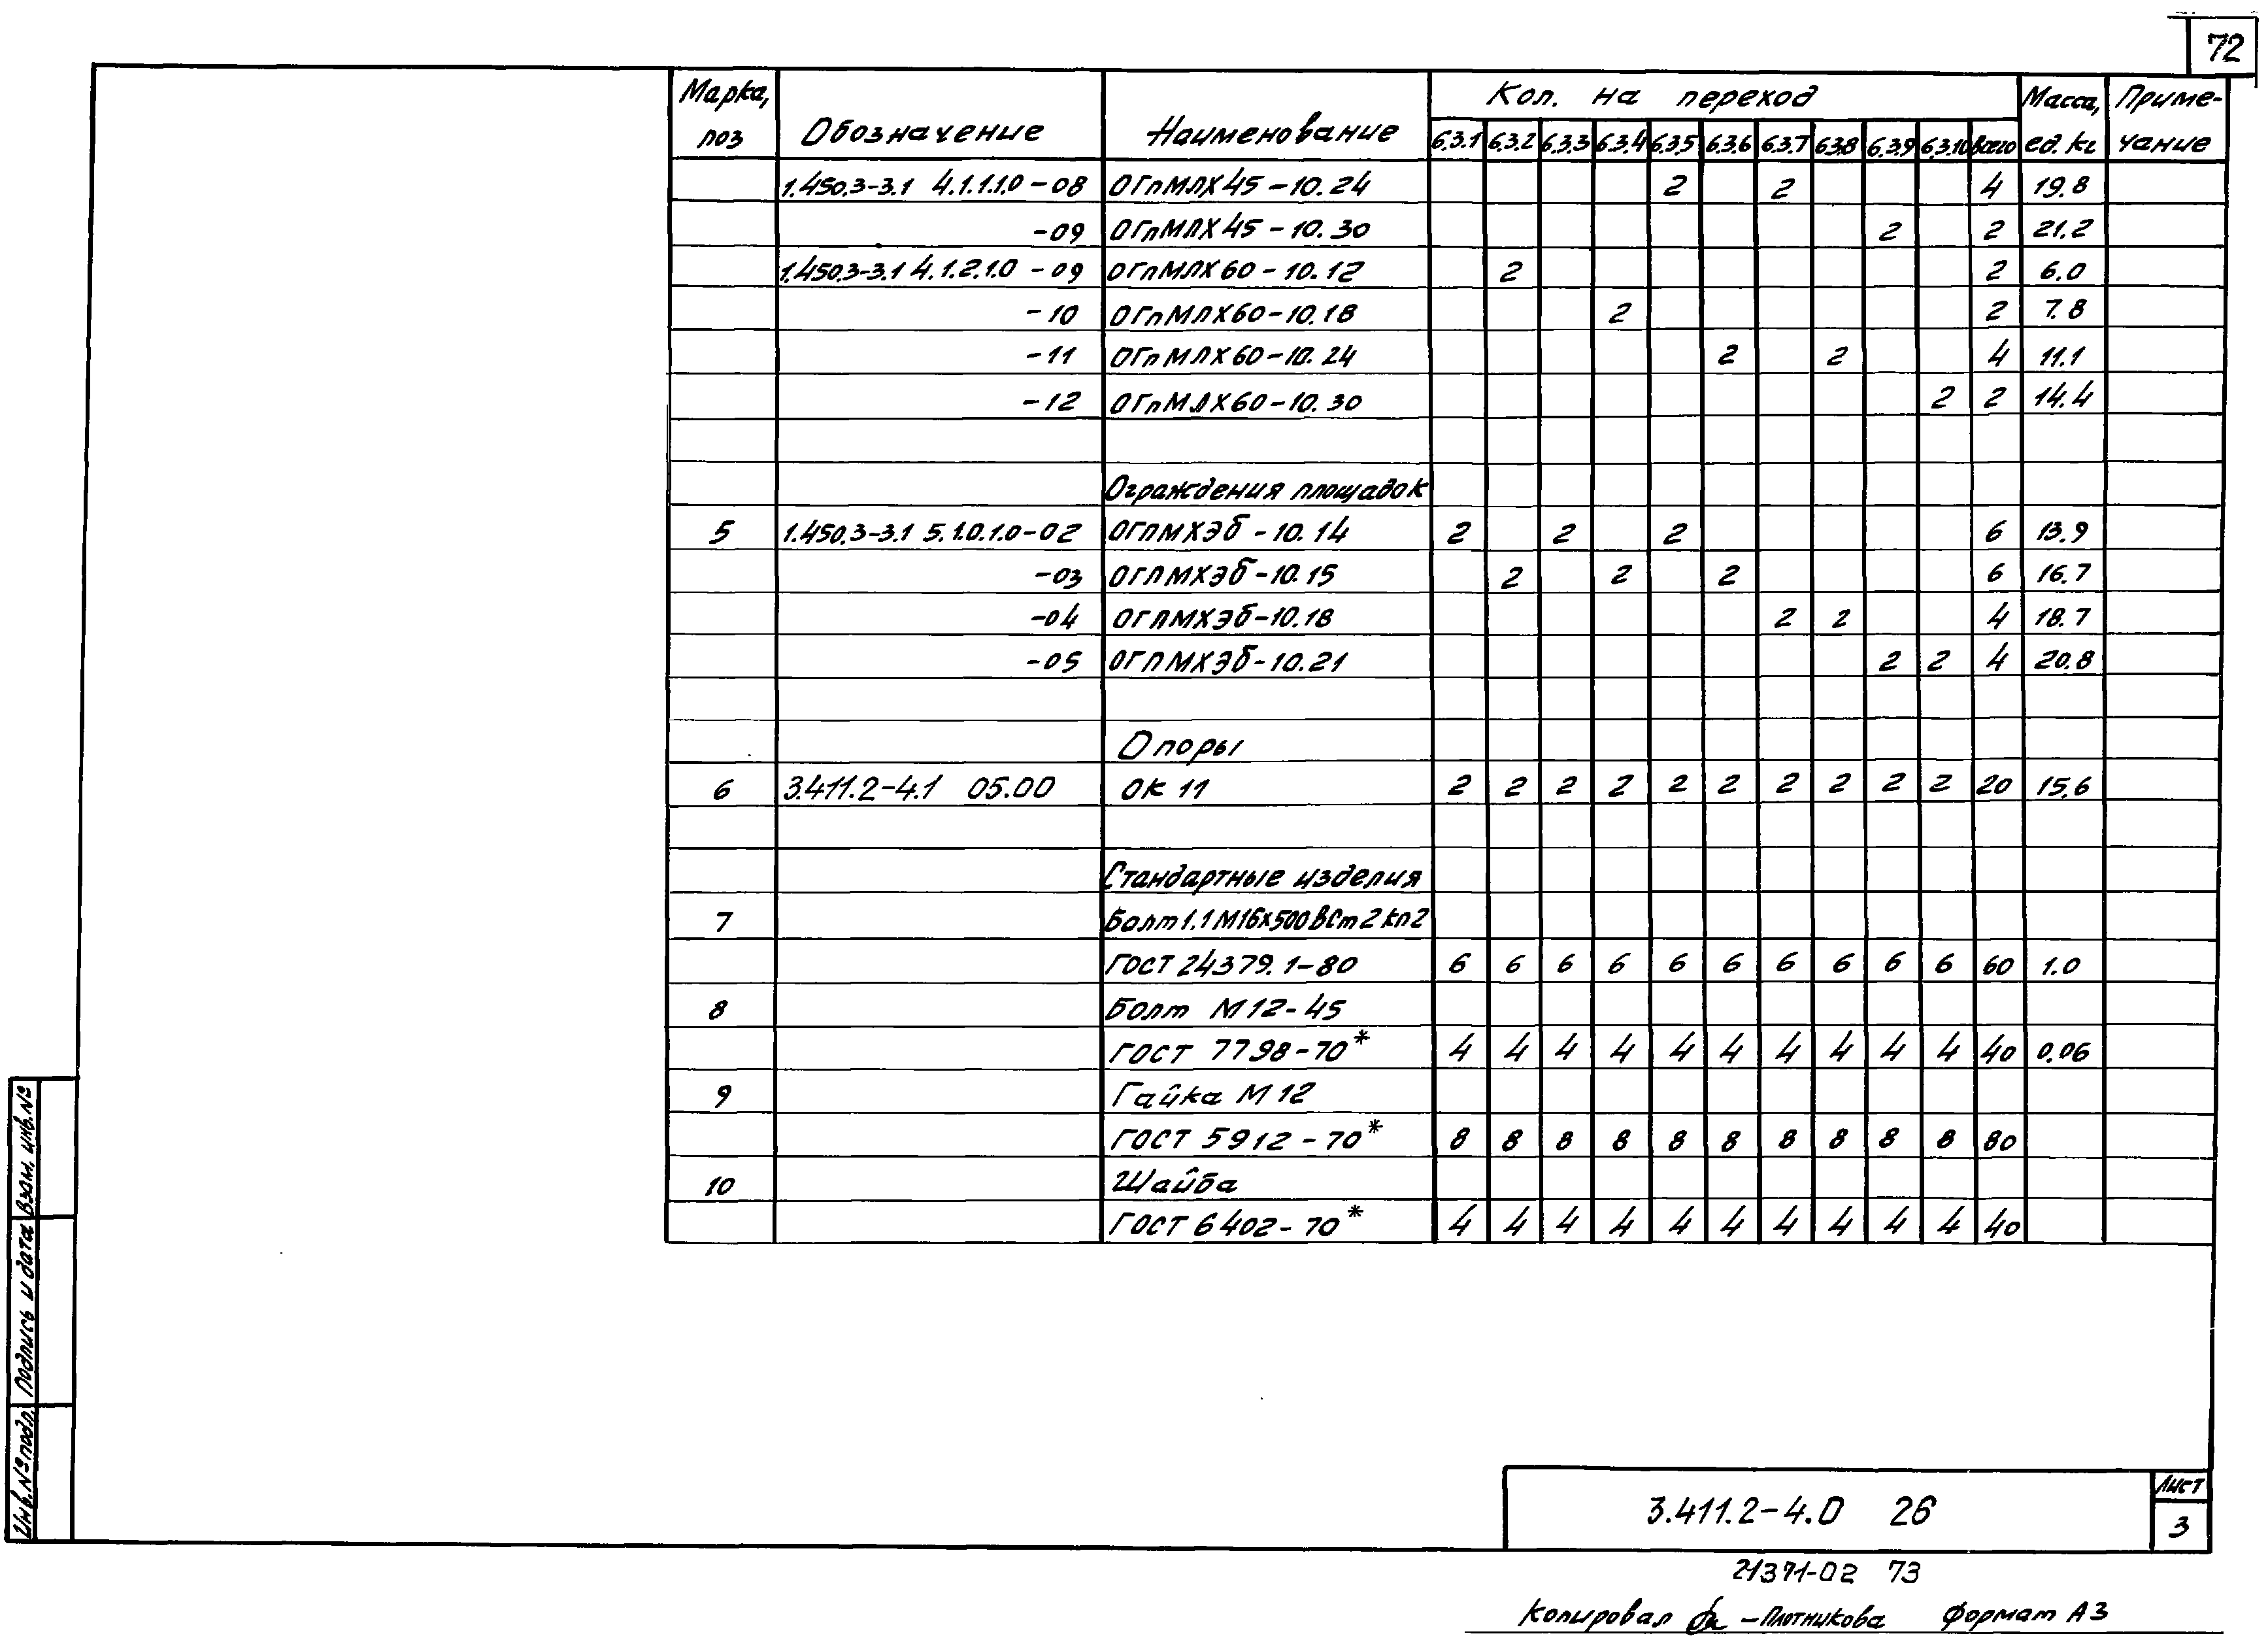 72
Марка, поз Обозначение Наименование Кол. на переход Масса, ед. кг Примечание
6.3.1 6.3.2 6.3.3 6.3.4 6.3.5 6.3.6 6.3.7 6.3.8 6.3.9 6.3.10 всего
1.450.3-3.1 4.1.1.1.0-08 ОГпМЛХ45-10.24 2 2 4 19.8
-09 ОГпМЛХ45-10.30 2 2 21.2
1.450.3-3.1 4.1.2.1.0-09 ОГпМЛХ60-10.12 2 2 6.0
-10 ОГпМЛХ60-10.18 2 2 7.8
-11 ОГпМЛХ60-10.24 2 2 4 11.1
-12 ОГпМЛХ60-10.30 2 2 14.4
Ограждения площадок
5 1.450.3-3.1 5.1.0.1.0-02 ОГПМХЭб-10.14 2 2 2 6 13.9
-03 ОГПМХЭб-10.15 2 2 2 6 16.7
-04 ОГПМХЭб-10.18 2 2 4 18.7
-05 ОГПМХЭб-10.21 2 2 4 20.8
Опоры
6 3.411.2-4.1 05.00 ОК 11 2 2 2 2 2 2 2 2 2 2 20 15.6
Стандартные изделия
7 Болт 1.1 М16х500 ВСт2кп2
ГОСТ 24379.1-80 6 6 6 6 6 6 6 6 6 6 60 1.0
8 Болт М12-45
ГОСТ 7798-70* 4 4 4 4 4 4 4 4 4 4 40 0.06
9 Гайка М12
ГОСТ 5912-70* 8 8 8 8 8 8 8 8 8 8 80
10 Шайба
ГОСТ 6402-70* 4 4 4 4 4 4 4 4 4 4 40
Взам. инв. №
Подпись и дата
Инв. № подл.
3.411.2-4.0 26
Лист
3
21371-02 73
Копировал -Плотникова Формат А3